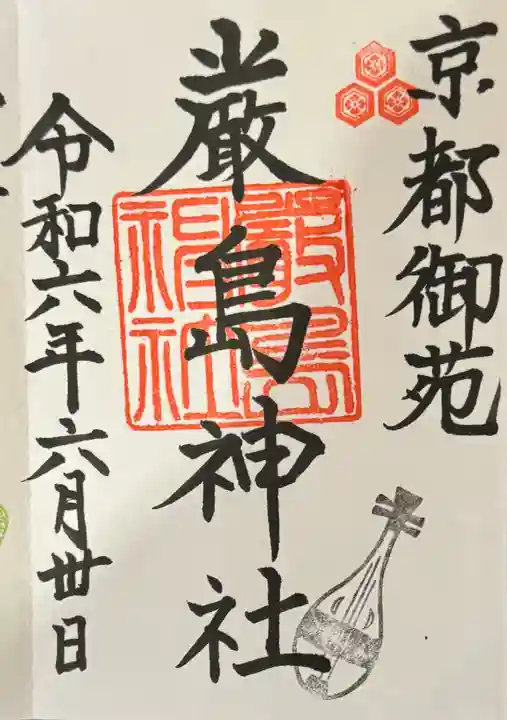 京都御苑
厳島神社
嚴島神社
令和六年六月卅日